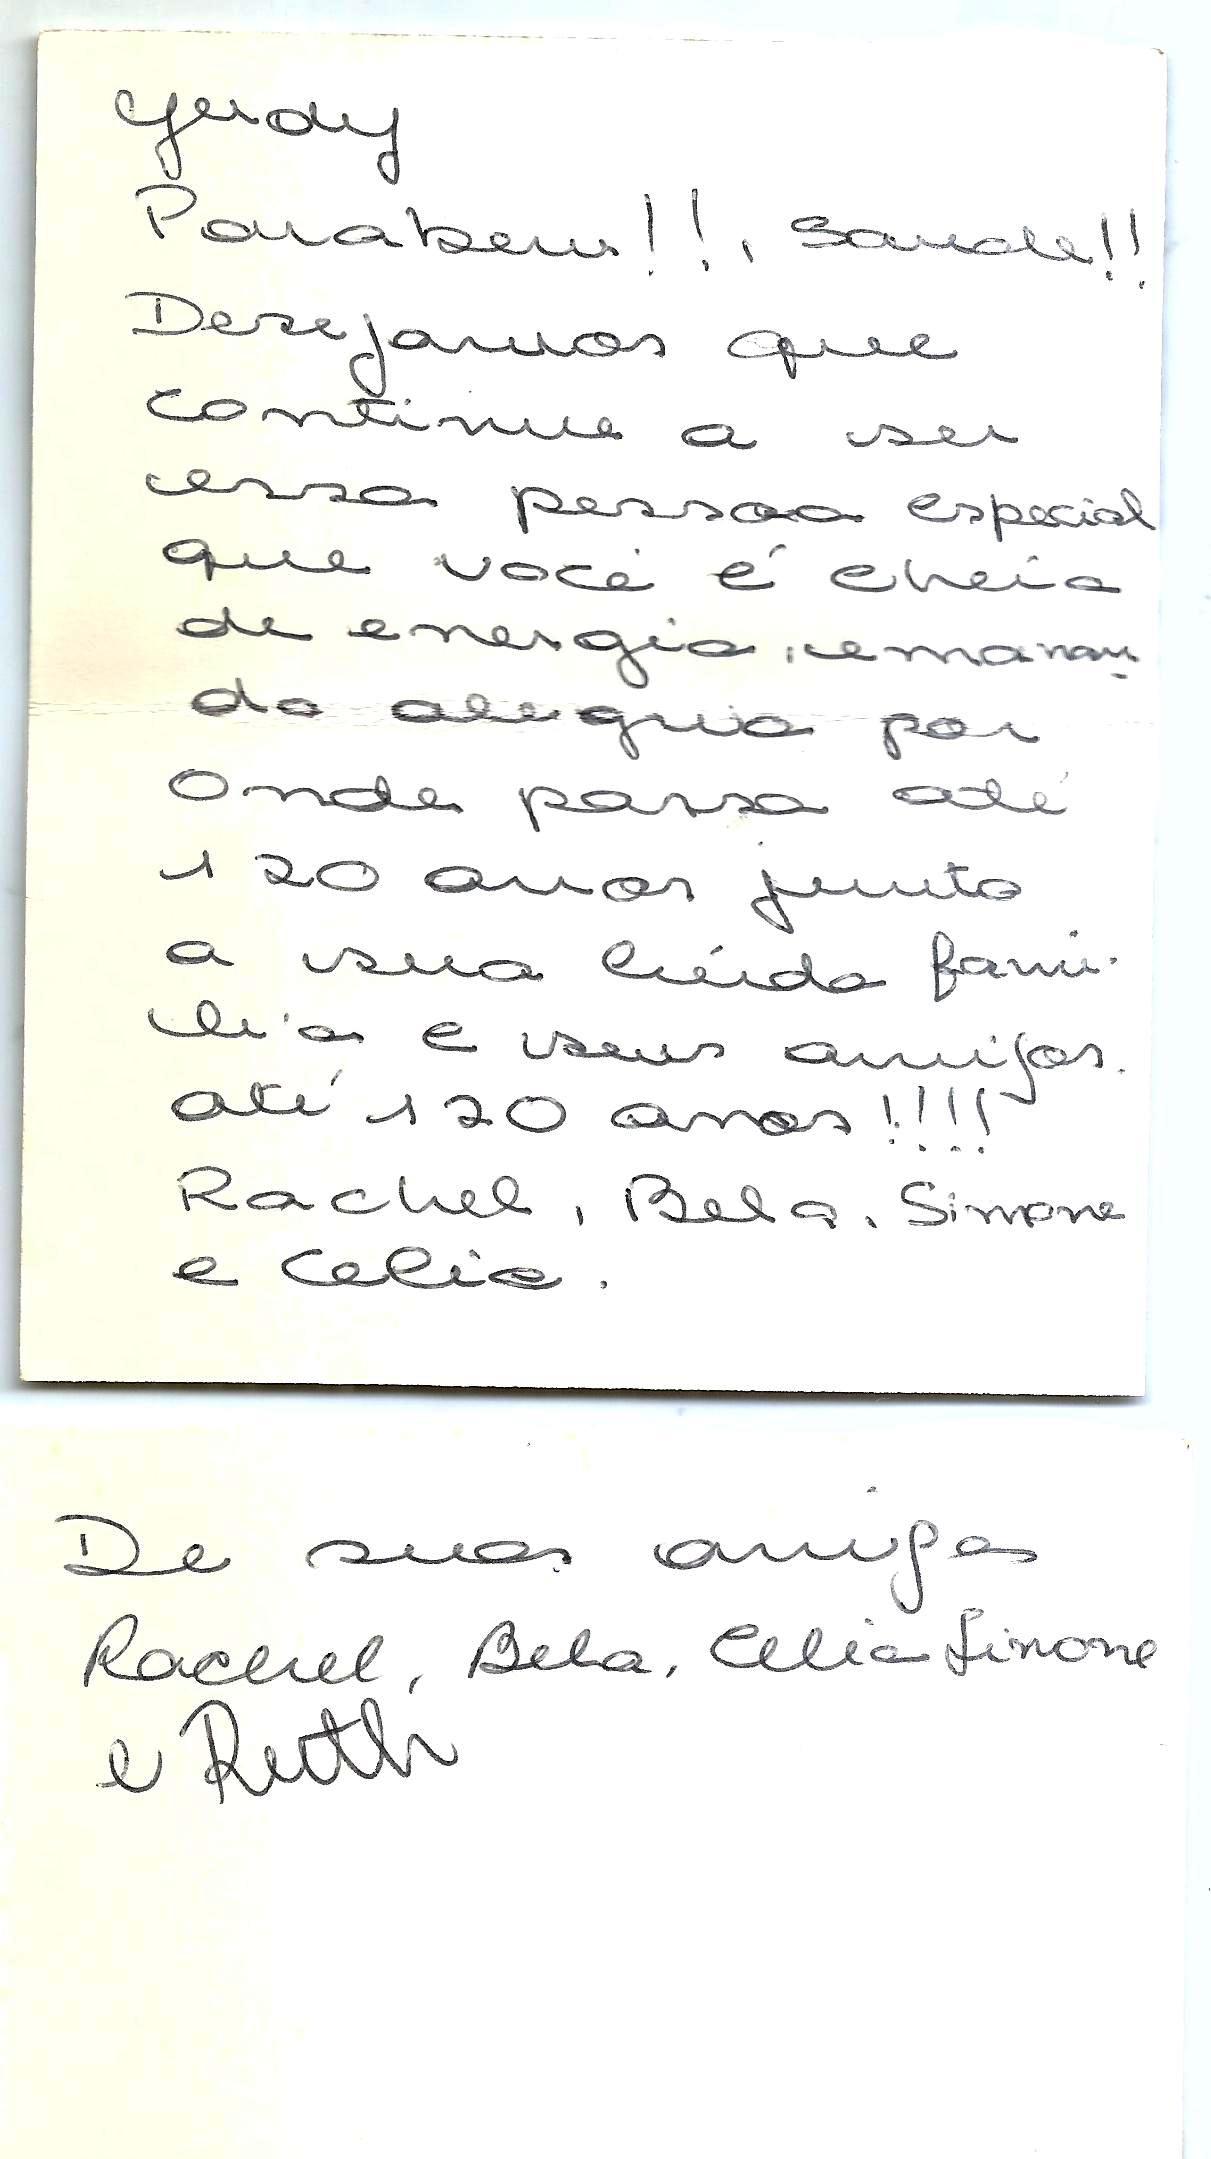 Gerdy
Parabens!!, Saude!!
Desejamos que
continue a ser
essa pessoa especial
que você é cheia
de energia, emanan-
do alegria por
onde passa até
120 anos junto
a sua linda fami-
lia e seus amigos.
até 120 anos!!!!
Rachel, Bela, Simone
e Celia.
De suas amigas
Rachel, Bela, Celia Simone
e Ruth